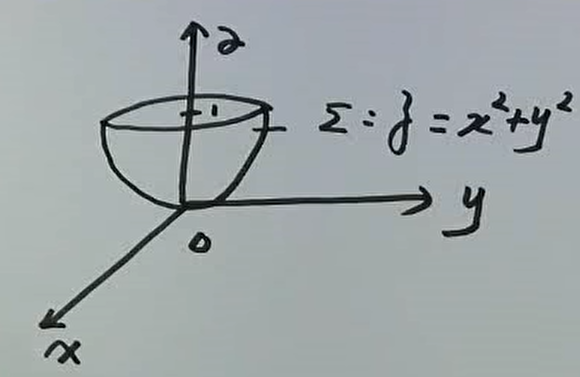 z
1
Σ : z = x²+y²
y
0
x